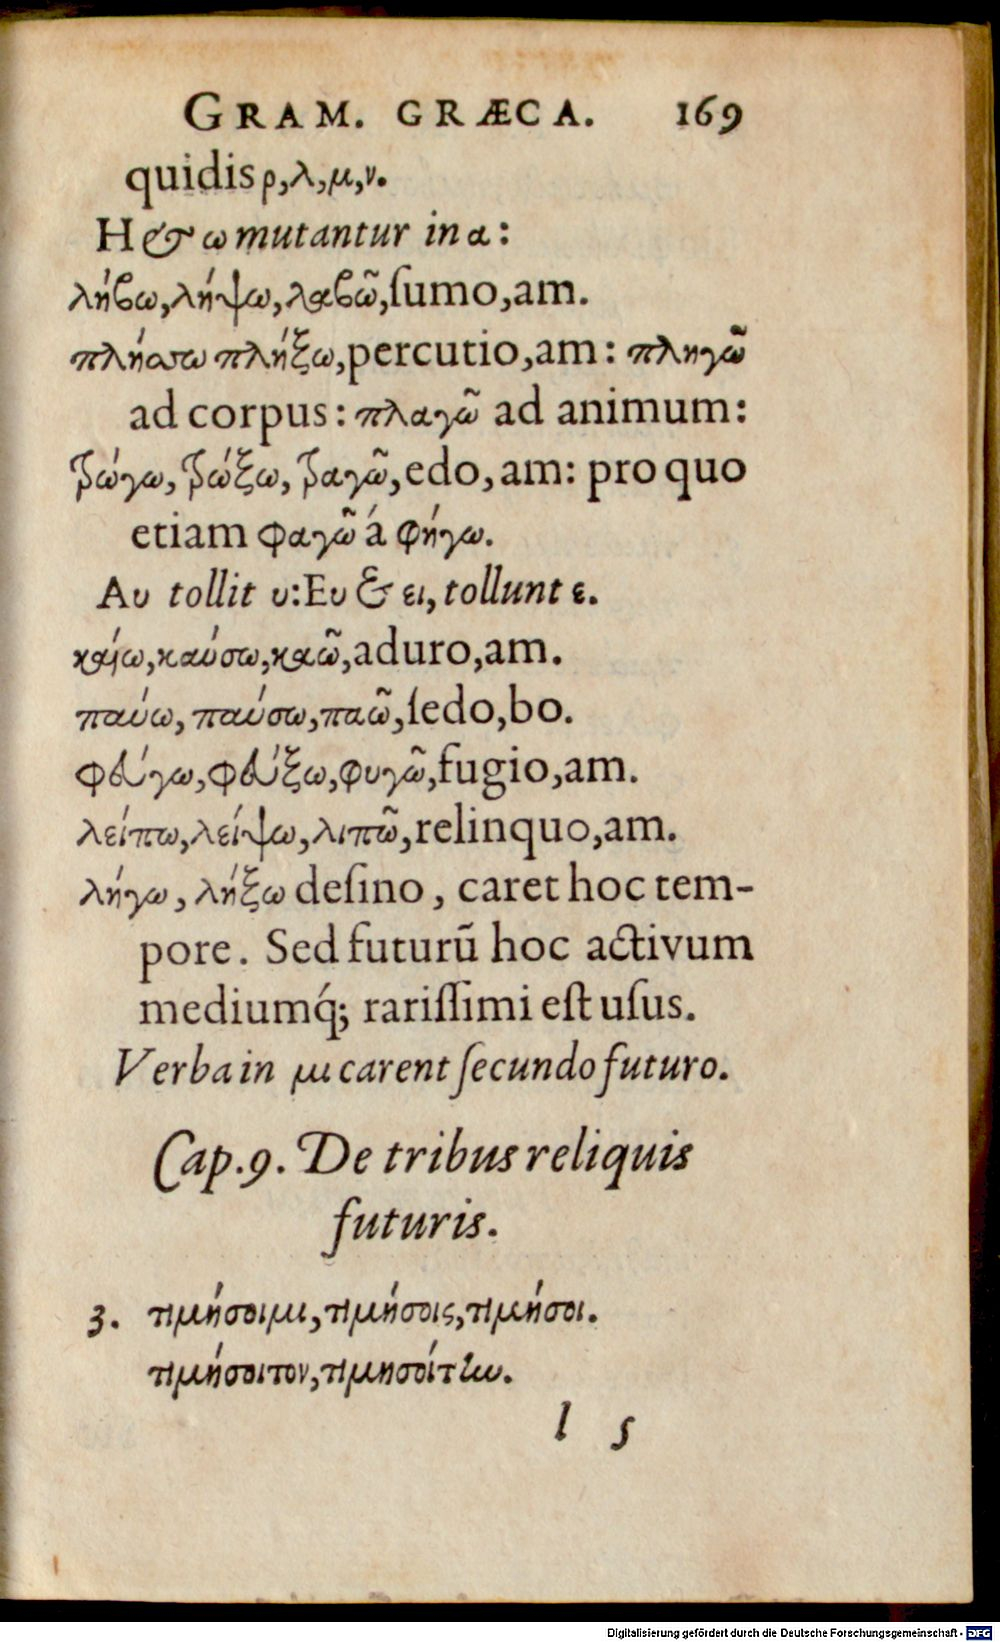 GRAM. GRÆCA. 169
quidis ρ, λ, μ, ν.
H & ω mutantur in α:
λήβω, λήψω, λαβῶ, ſumo, am.
πλήσσω πλήξω, percutio, am: πληγῶ
ad corpus: πλαγῶ ad animum:
τρώγω, τρώξω, τραγῶ, edo, am: pro quo
etiam φαγῶ á φήγω.
Αυ tollit υ: Ευ & ει, tollunt ε.
καίω, καύσω, καῶ, aduro, am.
παύω, παύσω, παῶ, ſedo, bo.
φεύγω, φεύξω, φυγῶ, fugio, am.
λείπω, λείψω, λιπῶ, relinquo, am.
λήγω, λήξω deſino, caret hoc tem-
pore. Sed futurũ hoc activum
mediumq́; rariſſimi eſt uſus.
Verba in μι carent ſecundo futuro.
Cap. 9. De tribus reliquis
futuris.
3. τιμήσοιμι, τιμήσοις, τιμήσοι.
τιμήσοιτον, τιμησοίτην.
l 5
Digitalisierung gefördert durch die Deutsche Forschungsgemeinschaft - DFG